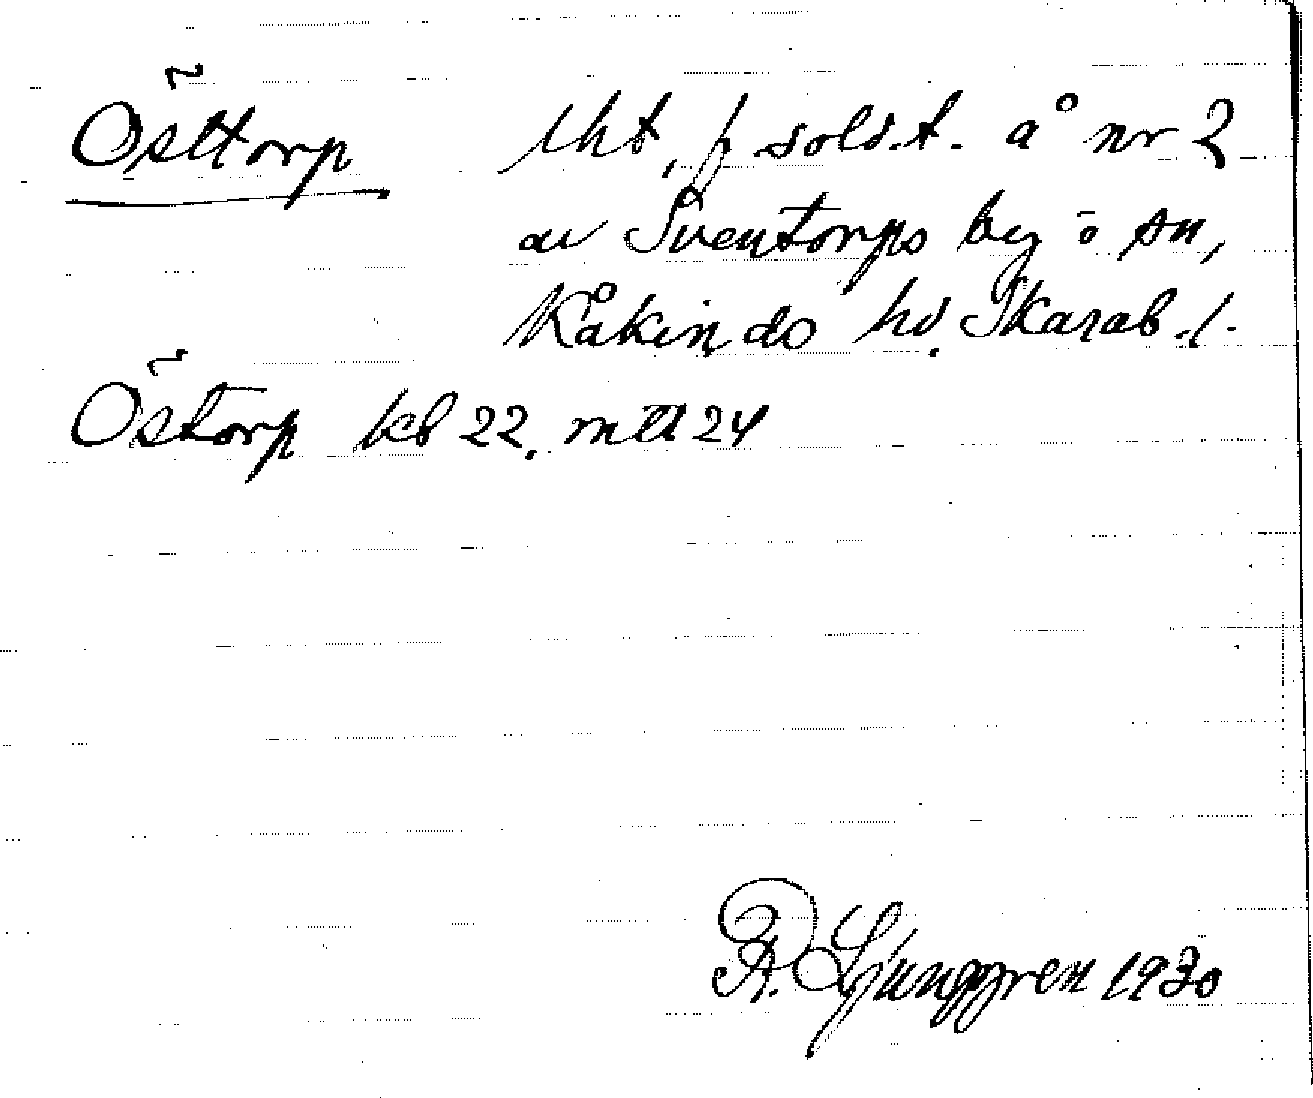 Östtorp lht, f soldt. å nr 2
av Sventorps by o sn,
Kåkinds hd. Skarab. l.
Östorp kb 22. mtl 24
R. Ljunggren 1930